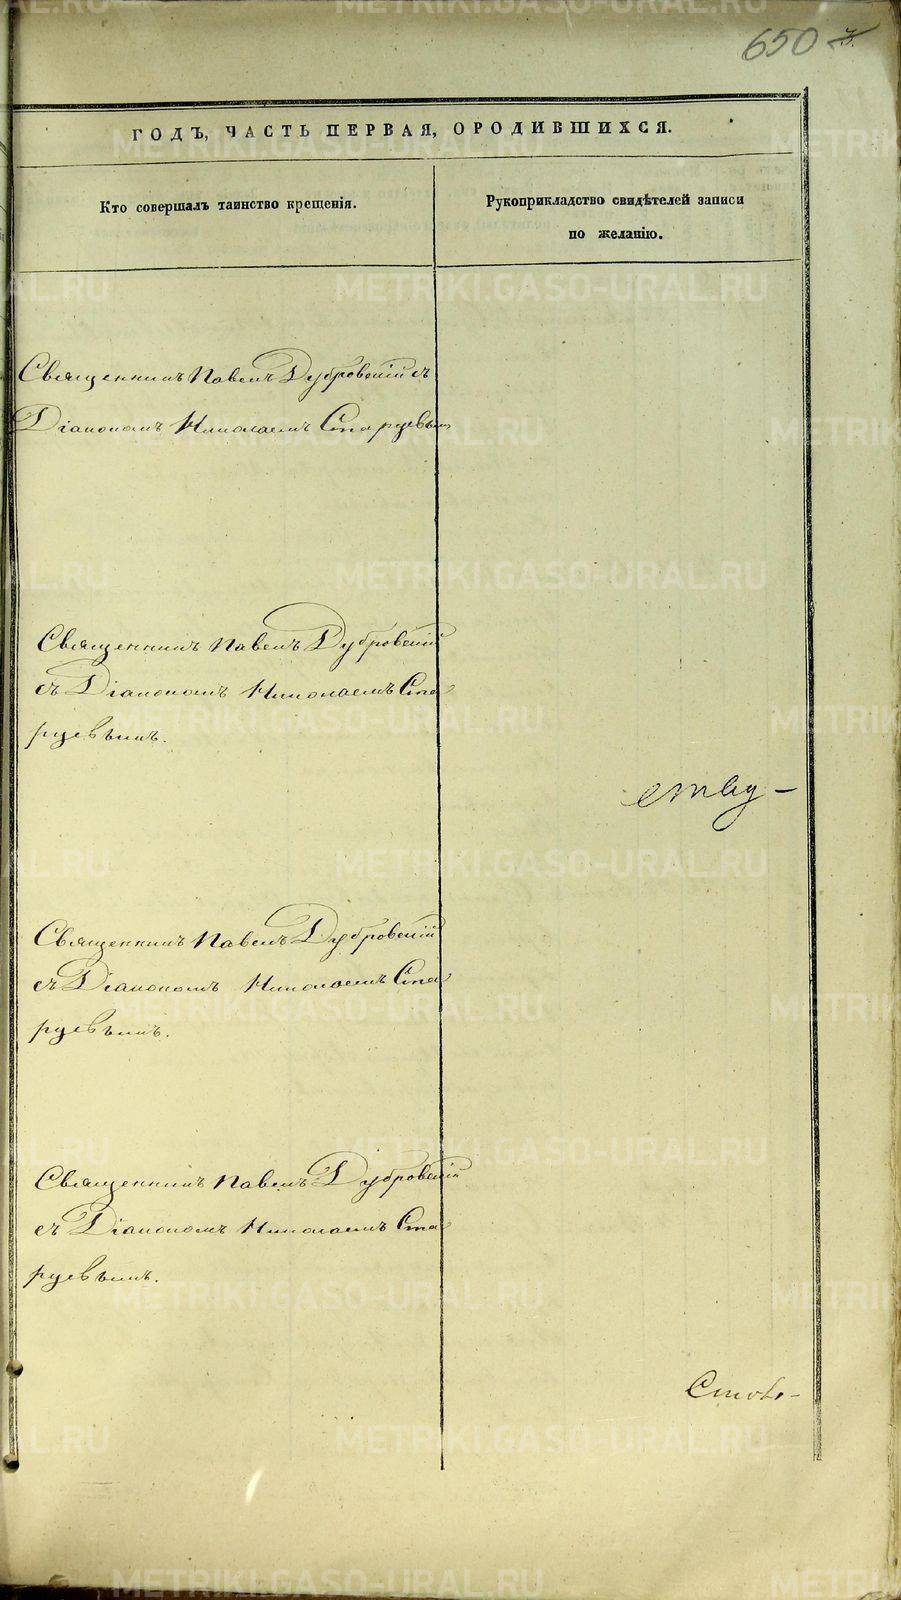 650
ГОДЪ, ЧАСТЬ ПЕРВАЯ, О РОДИВШИХСЯ.
Кто совершалъ таинство крещенія.
Рукоприкладство свидѣтелей записи
по желанію.
Священникъ Павелъ Дубровскій съ
Діакономъ Николаемъ Старцевымъ
Священникъ Павелъ Дубровскій
съ Діакономъ Николаемъ Ста
рцевымъ.
Священникъ Павелъ Дубровскій
съ Діакономъ Николаемъ Ста
рцевымъ.
Священникъ Павелъ Дубровскій
съ Діакономъ Николаемъ Ста
рцевымъ.
METRIKI.GASO-URAL.RU